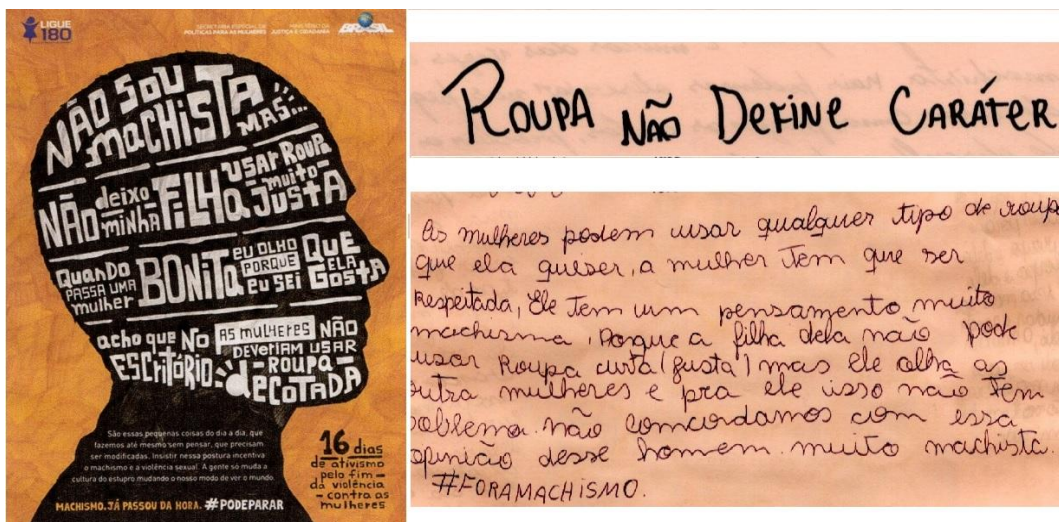 LIGUE
180
SECRETARIA ESPECIAL DE
POLÍTICAS PARA AS MULHERES
MINISTÉRIO DA
JUSTIÇA E CIDADANIA
BRASIL
NÃO SOU
machISTA
MAS...
NÃO deixo minha FILHa usar Roupa muito Justa
Quando PASSA UMA mulher BONITa eu OLHO PORQUE eu SEI QUE ELA GOSTA
acho que NO ESCRITÓRIO AS mULHERES NÃO DEVERIAM USAR ROUPA decOTADA
São essas pequenas coisas do dia a dia, que
fazemos até mesmo sem pensar, que precisam
ser modificadas. Insistir nessa postura incentiva
o machismo e a violência sexual. A gente só muda a
cultura do estupro mudando o nosso modo de ver o mundo
MACHISMO. JÁ PASSOU DA HORA. #PODEPARAR
16 dias
de ativismo
pelo fim
da violência
contra as
mulheres
ROUPA NÃO DEFINE CARÁTER
As mulheres podem usar qualquer tipo de roupa
que ela quiser, a mulher tem que ser
respeitada, Ele tem um pensamento muito
machisma, Porque a filha dela não pode
usar Roupa curta (justa) mas ele olha as
outra mulheres e pra ele isso não tem
poblema. não comcordamos com essa
opinião desse homem muito machista.
#FORAMACHISMO.